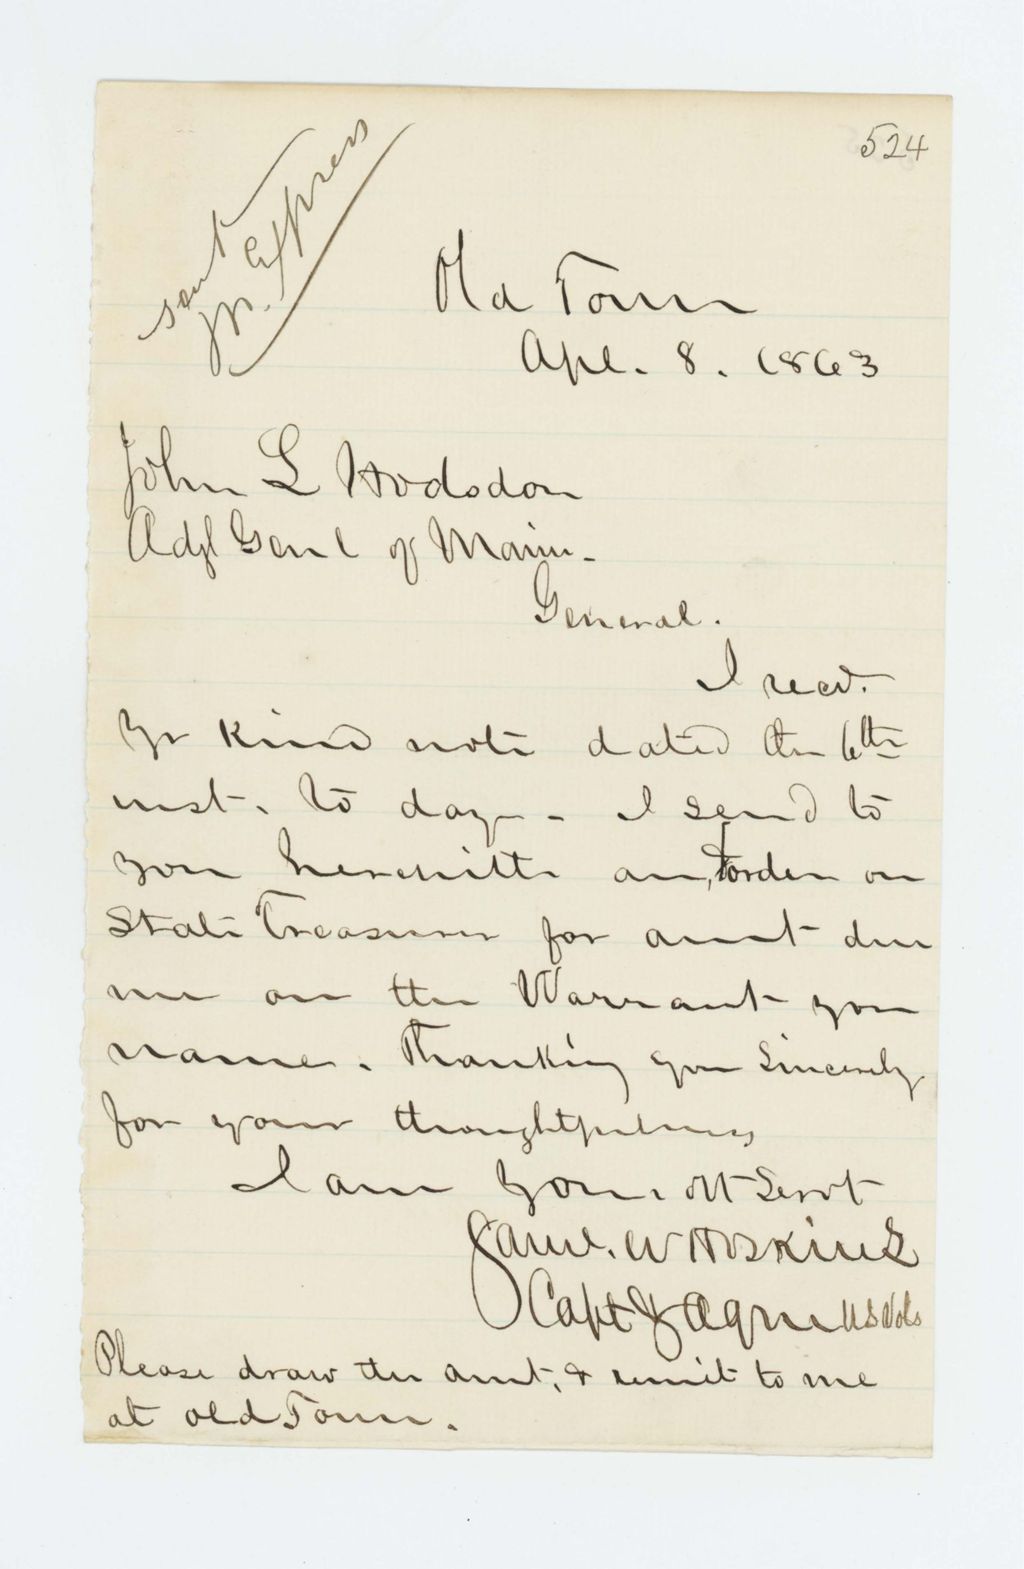 524
sent
pr. Express
Old Town
Apl. 8. 1863
John L Hodsdon
Adjt Genl of Maine
General.
I recd.
Yr kind note dated the 6th
inst. to day - I send to
you herewith an order on
State Treasurer for amt due
me on the Warrant you
name. Thanking you Sincerely
for your thoughtfulness
I am Your obt Servt
Saml. W Hoskins
Capt & AQM US Vols
Please draw the amt, & remit to me
at Old Town.